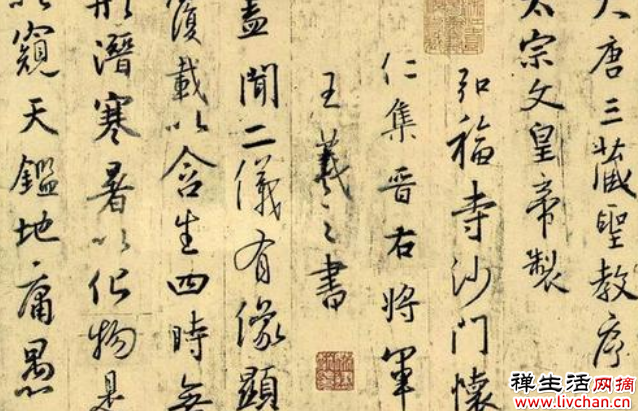 大唐三藏聖教序
太宗文皇帝製
弘福寺沙門懷
仁集晋右將軍
王羲之書
盖聞二儀有像顯
覆載以含生四時無
形潛寒暑以化物是
以窺天鑑地庸愚
禅生活网摘
www.livchan.cn